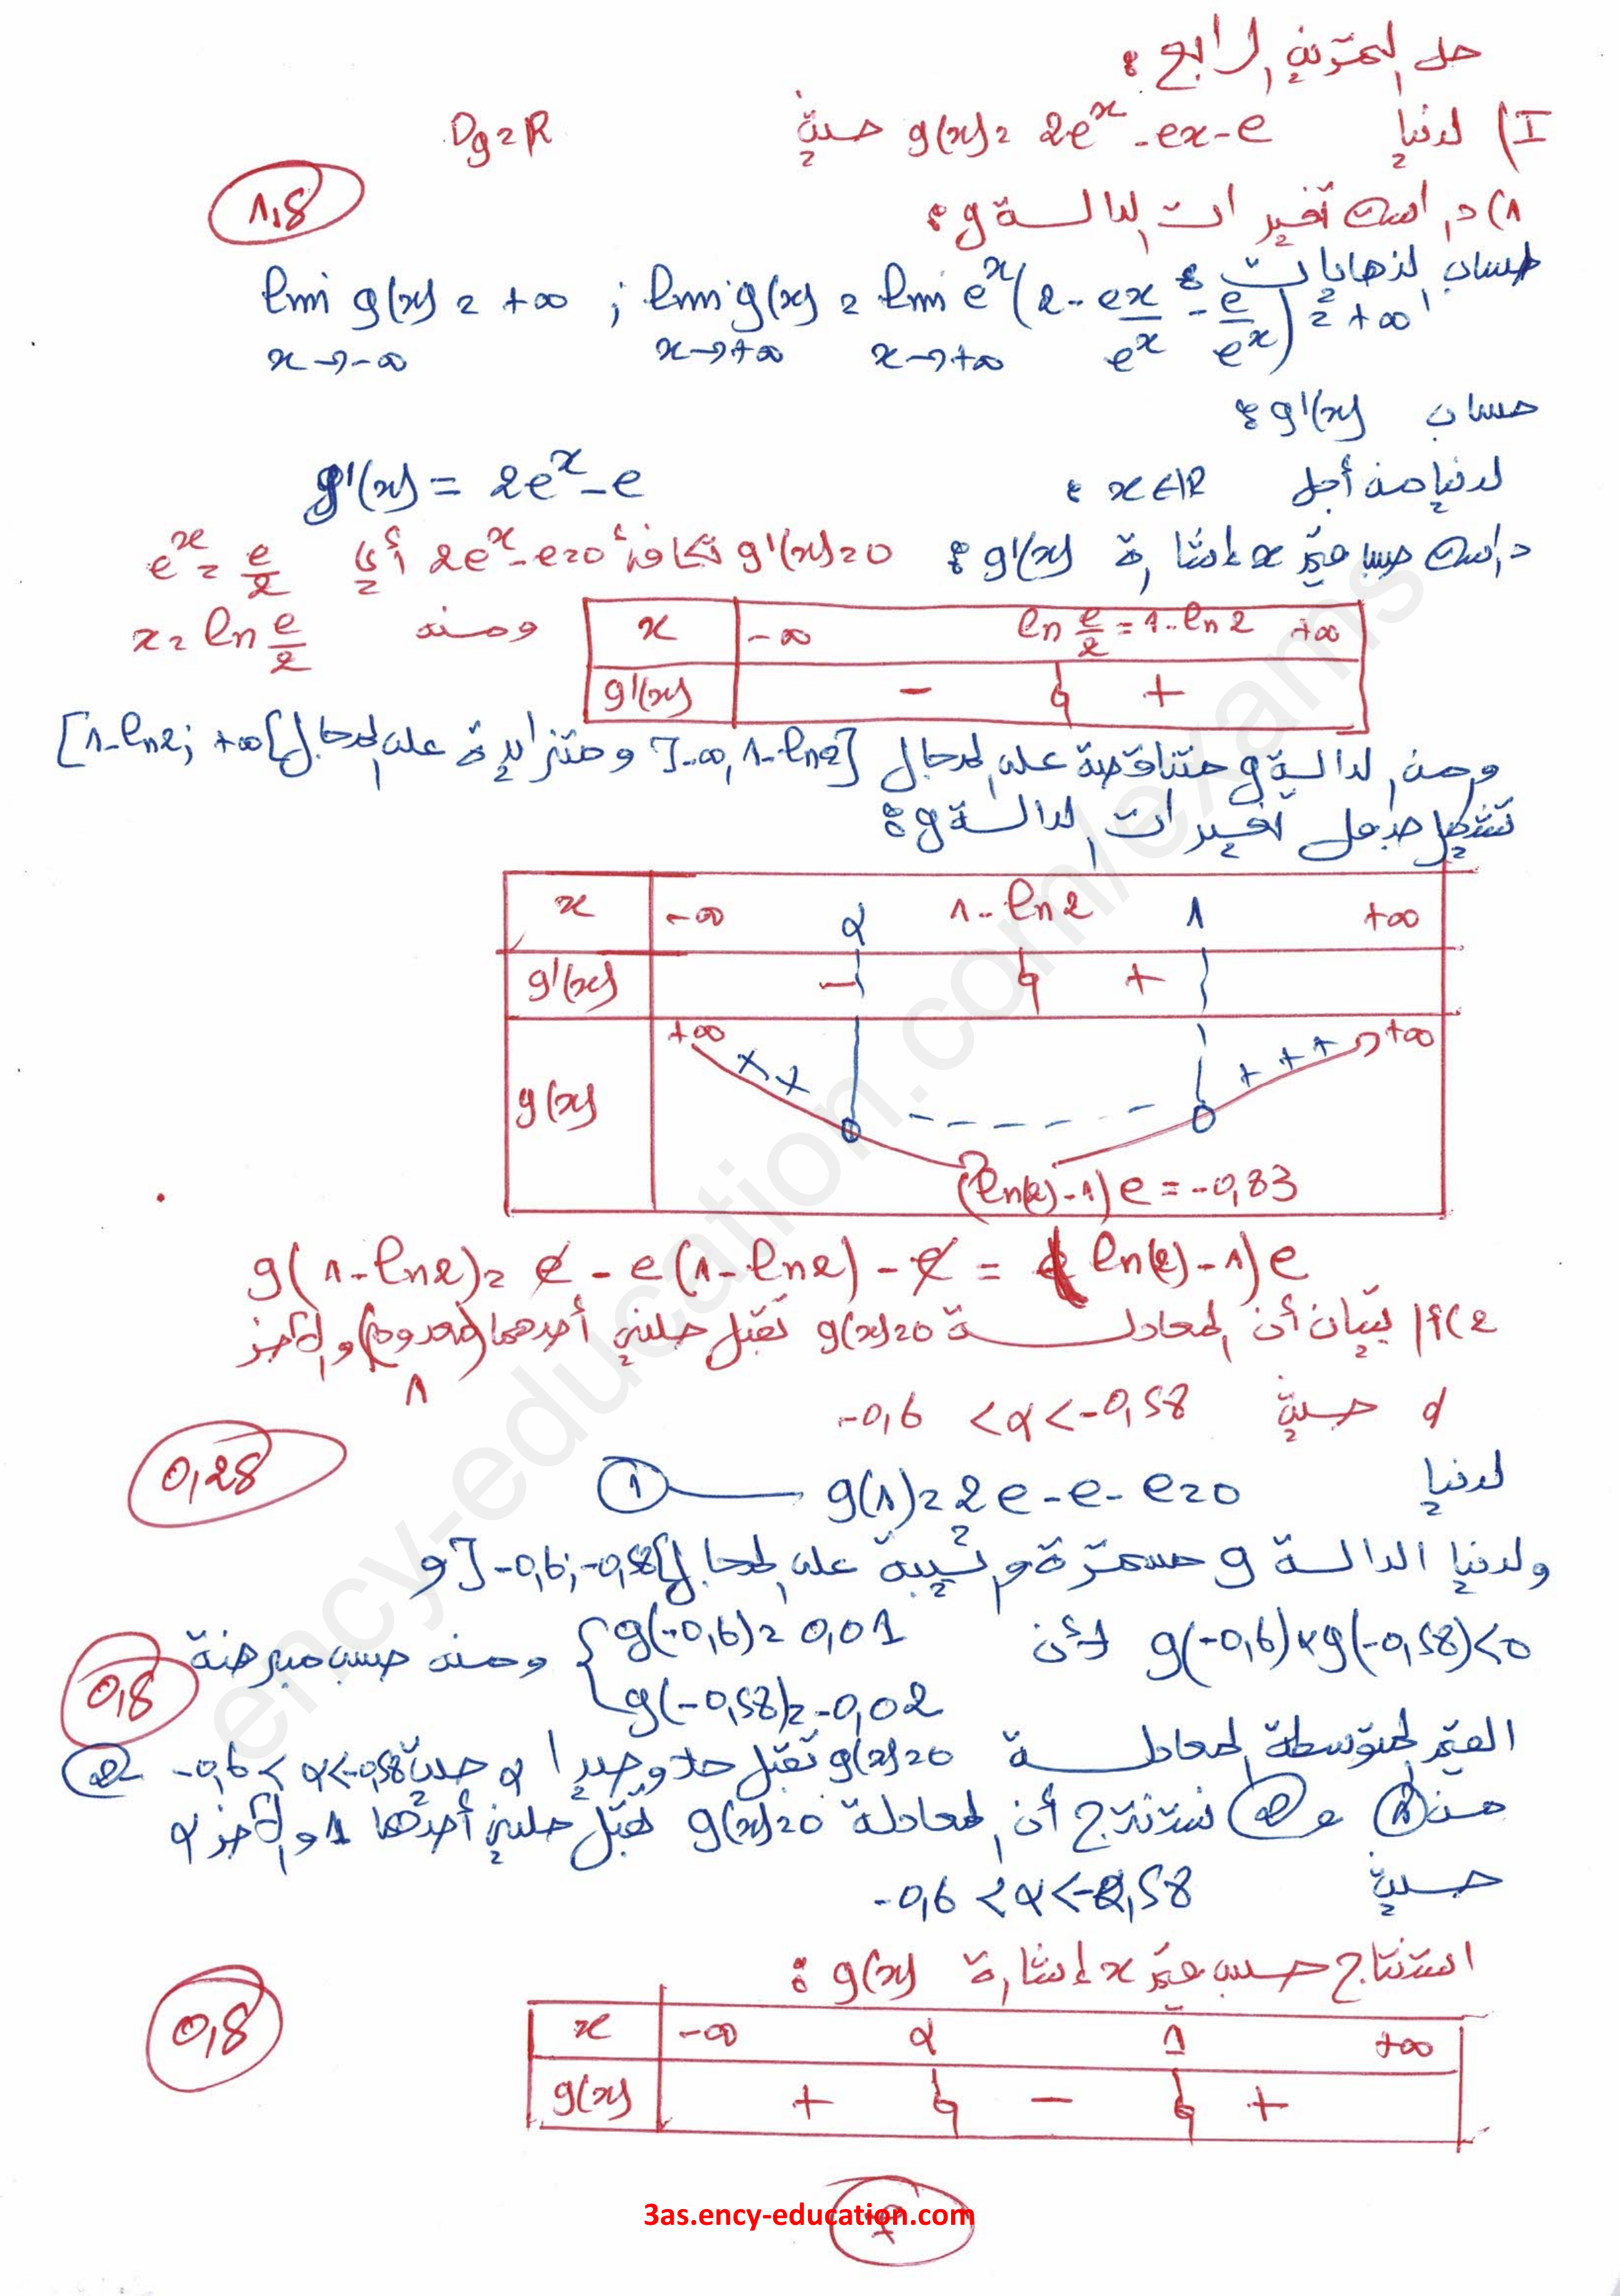 حل التمرين الرابع :
I) لدينا g(x) = 2e^x - ex - e حيث Dg = R
1) دراسة تغيرات الدالة g :
1,5
حساب النهايات :
lim g(x) = +∞ ; lim g(x) = lim e^x (2 - ex/e^x - e/e^x) = +∞
x→-∞ x→+∞ x→+∞
حساب g'(x) :
لدينا من أجل x∈R : g'(x) = 2e^x - e
دراسة حسب قيم x إشارة g'(x) : g'(x)=0 تكافئ 2e^x - e = 0 أي e^x = e/2
ومنه x = ln e/2
x -∞ ln e/2 = 1-ln2 +∞
g'(x) - 0 +
ومنه الدالة g متناقصة على المجال ]-∞, 1-ln2] ومتزايدة على المجال [1-ln2; +∞[
تشكيل جدول تغيرات الدالة g :
x -∞ α 1-ln2 1 +∞
g'(x) - 0 +
+∞ + + + + + +∞
g(x) 0 - - - - - 0
(ln(2)-1)e = -0,83
g(1-ln2) = e - e(1-ln2) - e = (ln(2)-1)e
2) أ) تبيان أن المعادلة g(x)=0 تقبل حلين أحدهما (معدوم) والآخر
1
α حيث -0,6 < α < -0,58
0,25
لدينا g(1) = 2e - e - e = 0 ——— ①
ولدينا الدالة g مستمرة ورتيبة على المجال ]-0,6; -0,58[ و
g(-0,6) × g(-0,58) < 0 لأن { g(-0,6) = 0,01 ومنه حسب مبرهنة
g(-0,58) = -0,02
0,5
القيم المتوسطة المعادلة g(x)=0 تقبل حلا وحيدا α حيث -0,6 < α < -0,58 ②
من ① و ② نستنتج أن المعادلة g(x)=0 تقبل حلين أحدهما 1 والآخر α
حيث -0,6 < α < -0,58
استنتاج حسب قيم x إشارة g(x) :
0,5
x -∞ α 1 +∞
g(x) + 0 - 0 +
3as.ency-education.com
ency-education.com/exams